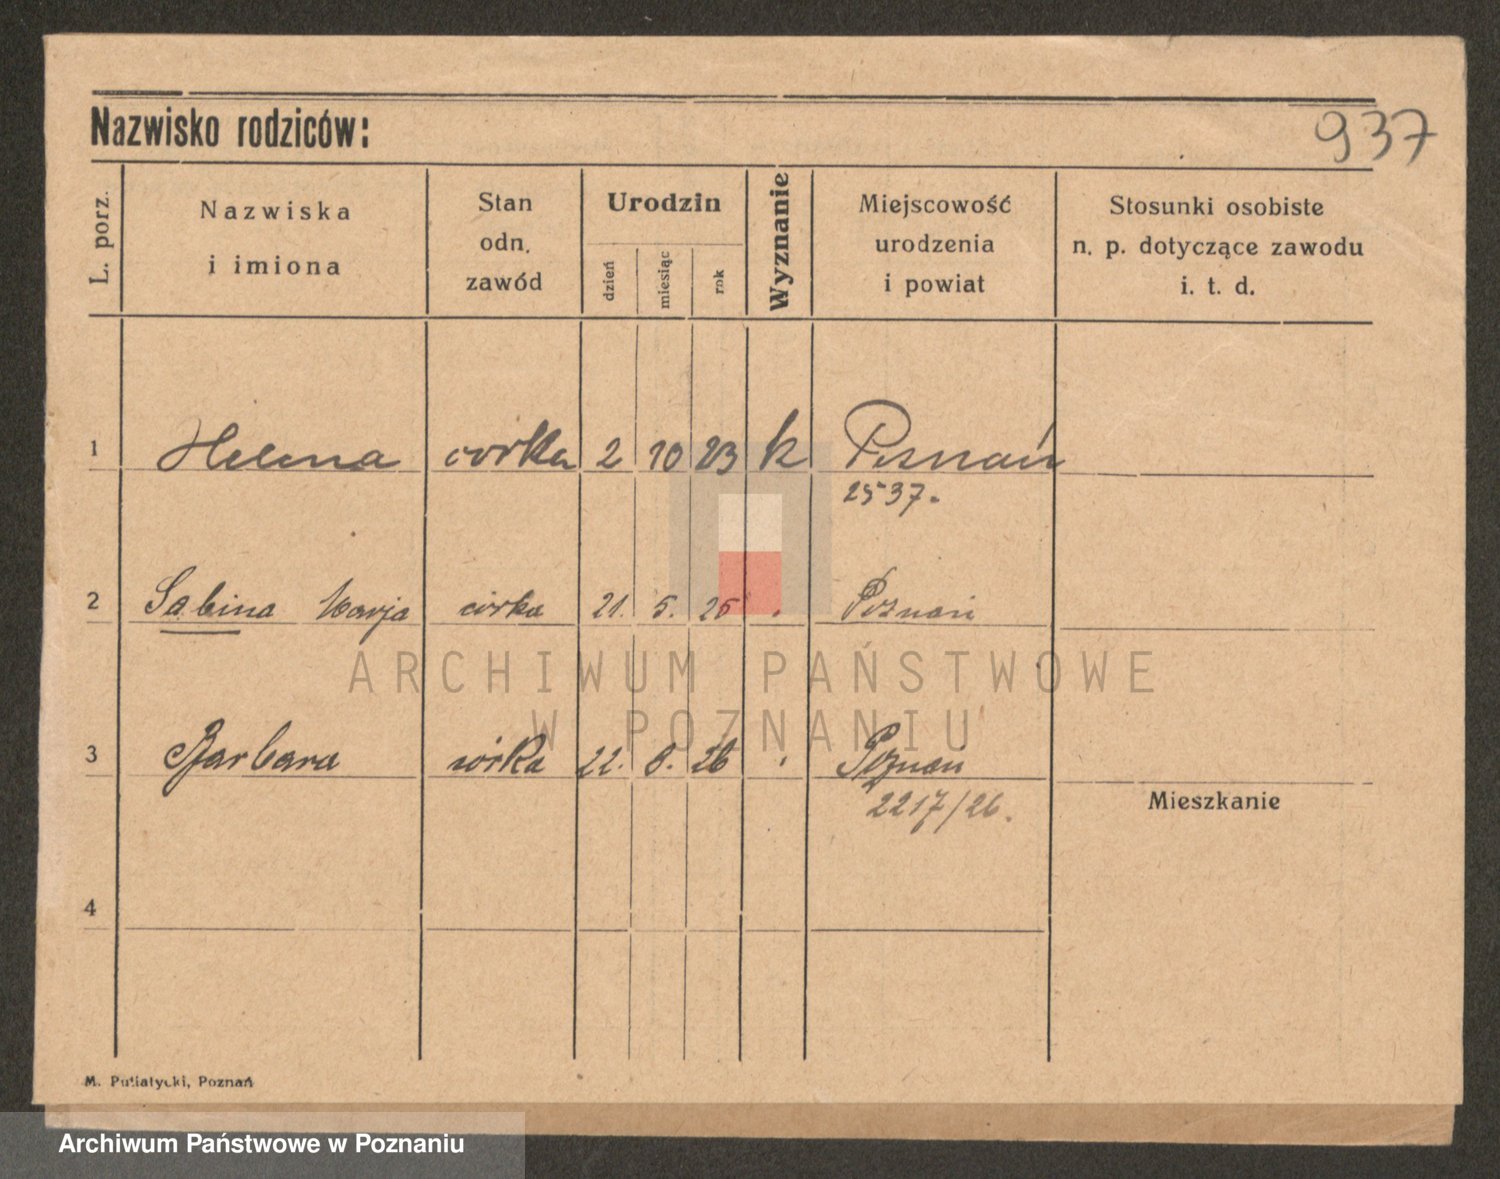 Nazwisko rodziców:
937
L. porz.
Nazwiska
i imiona
Stan
odn.
zawód
Urodzin
dzień
miesiąc
rok
Wyznanie
Miejscowość
urodzenia
i powiat
Stosunki osobiste
n. p. dotyczące zawodu
i. t. d.
1 Helena córka 2 10 23 k Poznań
2537.
2 Sabina Marja córka 21. 5. 25 Poznań
ARCHIWUM PAŃSTWOWE
W POZNANIU
3 Barbara córka 22. 8. 26 Poznań
2217/26.
Mieszkanie
4
M. Putiatycki, Poznań
Archiwum Państwowe w Poznaniu